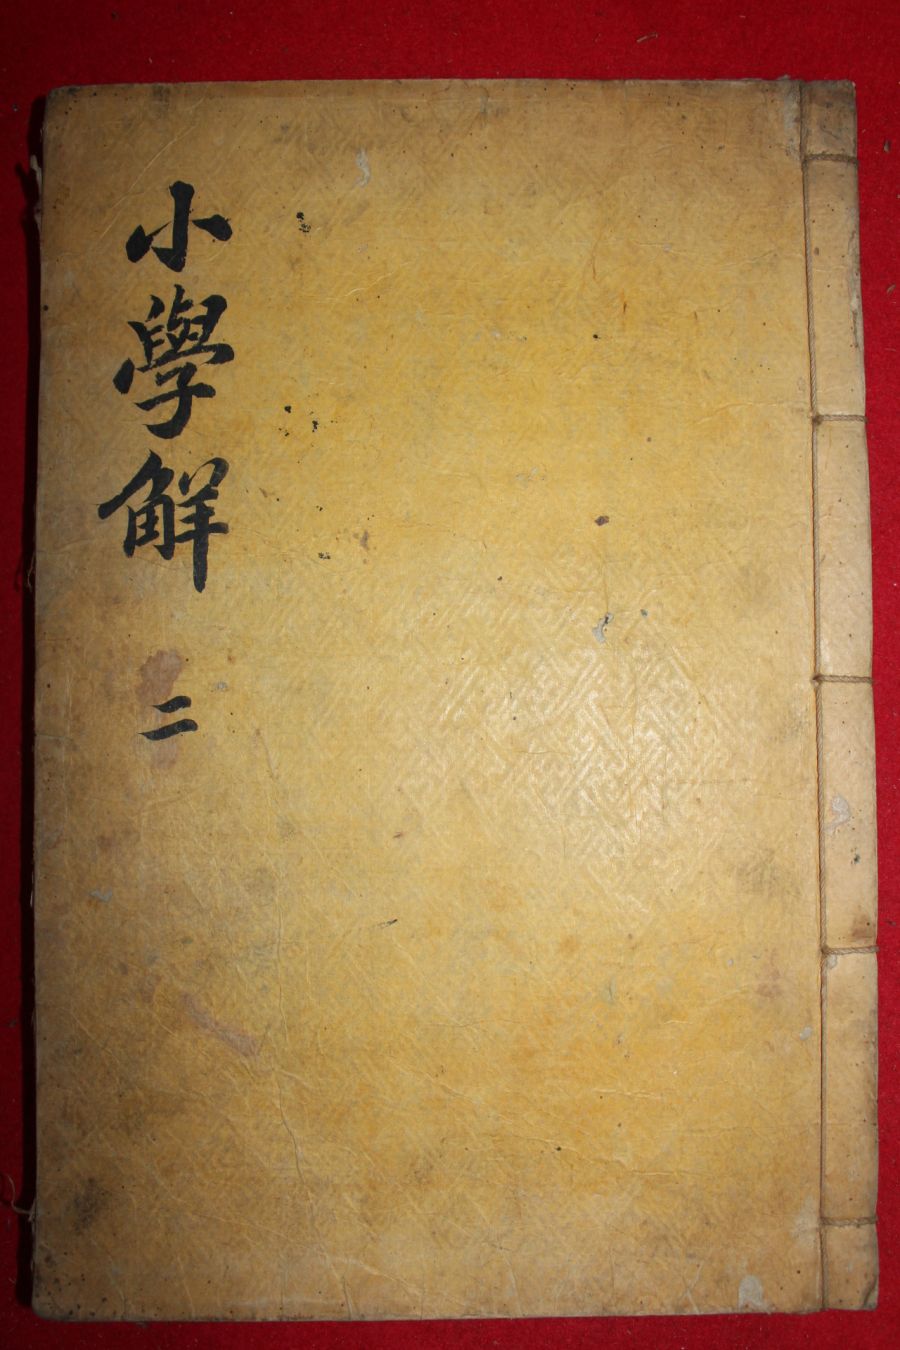 小學解 二